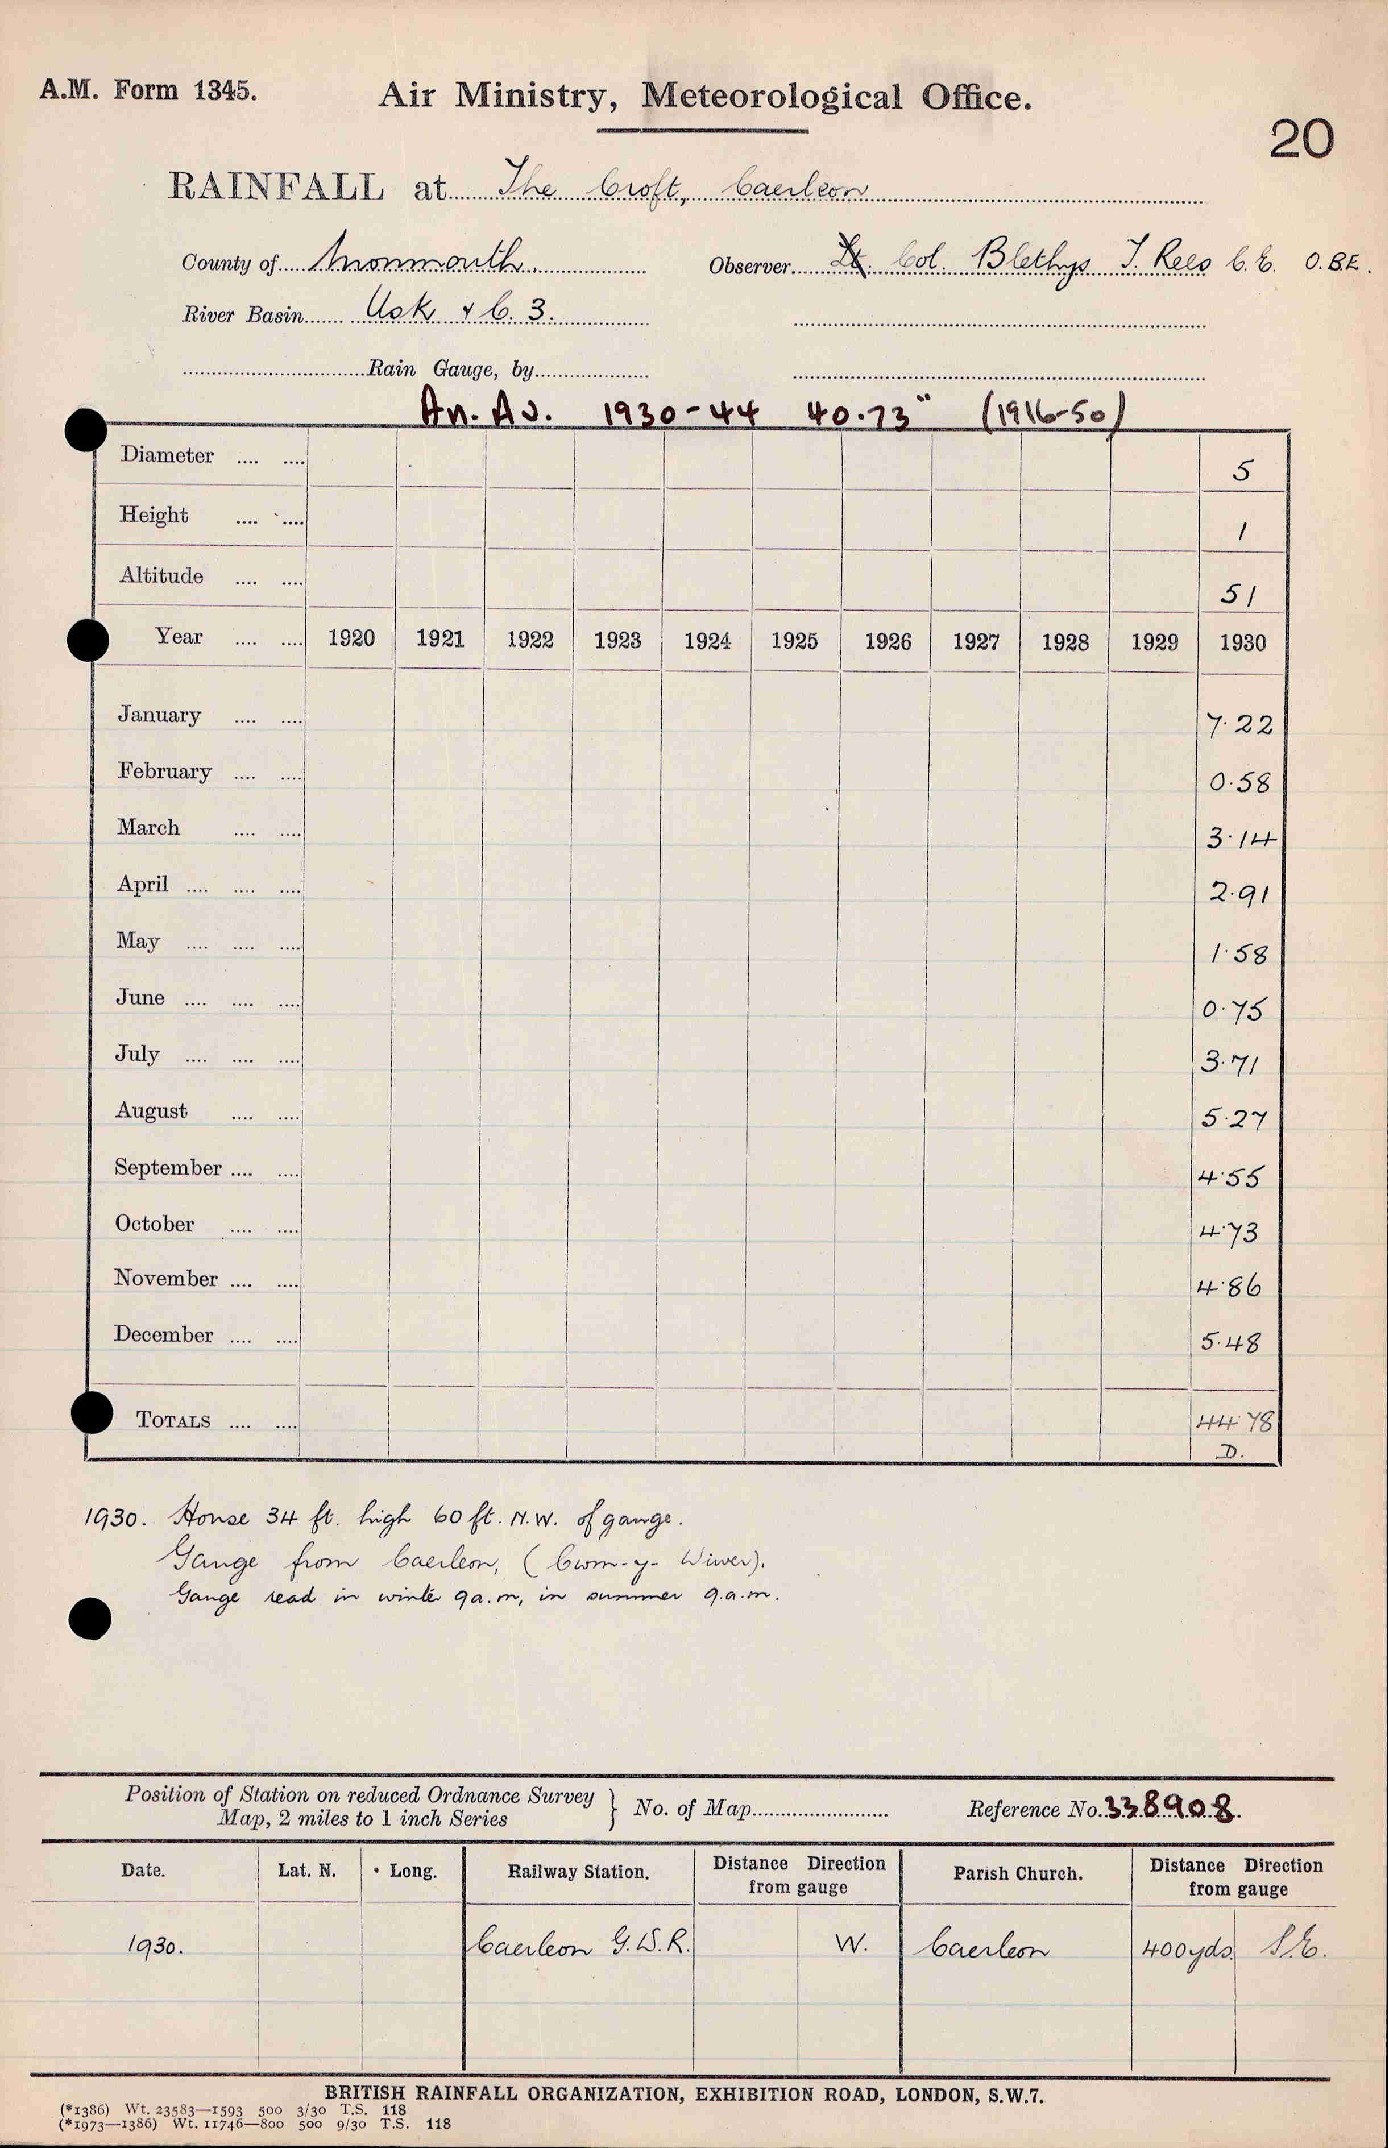 A.M. Form 1345.
Air Ministry, Meteorological Office.
20
RAINFALL at The Croft, Caerleon
County of Monmouth.
Observer Lt. Col. Blethyn T. Rees C.E. O.B.E.
River Basin Usk & C. 3.
Rain Gauge, by
An. Av. 1930-44 40.73" (1916-50)
Diameter .... .... 5
Height .... .... 1
Altitude .... .... 51
Year .... .... 1920 1921 1922 1923 1924 1925 1926 1927 1928 1929 1930
January .... .... 7.22
February .... .... 0.58
March .... .... 3.14
April .... .... .... 2.91
May .... .... .... 1.58
June .... .... .... 0.75
July .... .... .... 3.71
August .... .... 5.27
September .... .... 4.55
October .... .... 4.73
November .... .... 4.86
December .... .... 5.48
TOTALS .... .... 44.78
D.
1930. House 34 ft. high 60 ft. N.W. of gauge.
Gauge from Caerleon, (Cwm-y-Wiwer).
Gauge read in winter 9a.m, in summer 9.a.m.
Position of Station on reduced Ordnance Survey
Map, 2 miles to 1 inch Series
} No. of Map
Reference No. 338908.
Date. Lat. N. Long. Railway Station. Distance Direction from gauge Parish Church. Distance Direction from gauge
1930. Caerleon G.W.R. W. Caerleon 400yds S.E.
BRITISH RAINFALL ORGANIZATION, EXHIBITION ROAD, LONDON, S.W.7.
(*1386) Wt. 23583—1593 500 3/30 T.S. 118
(*1973—1386) Wt. 11746—800 500 9/30 T.S. 118